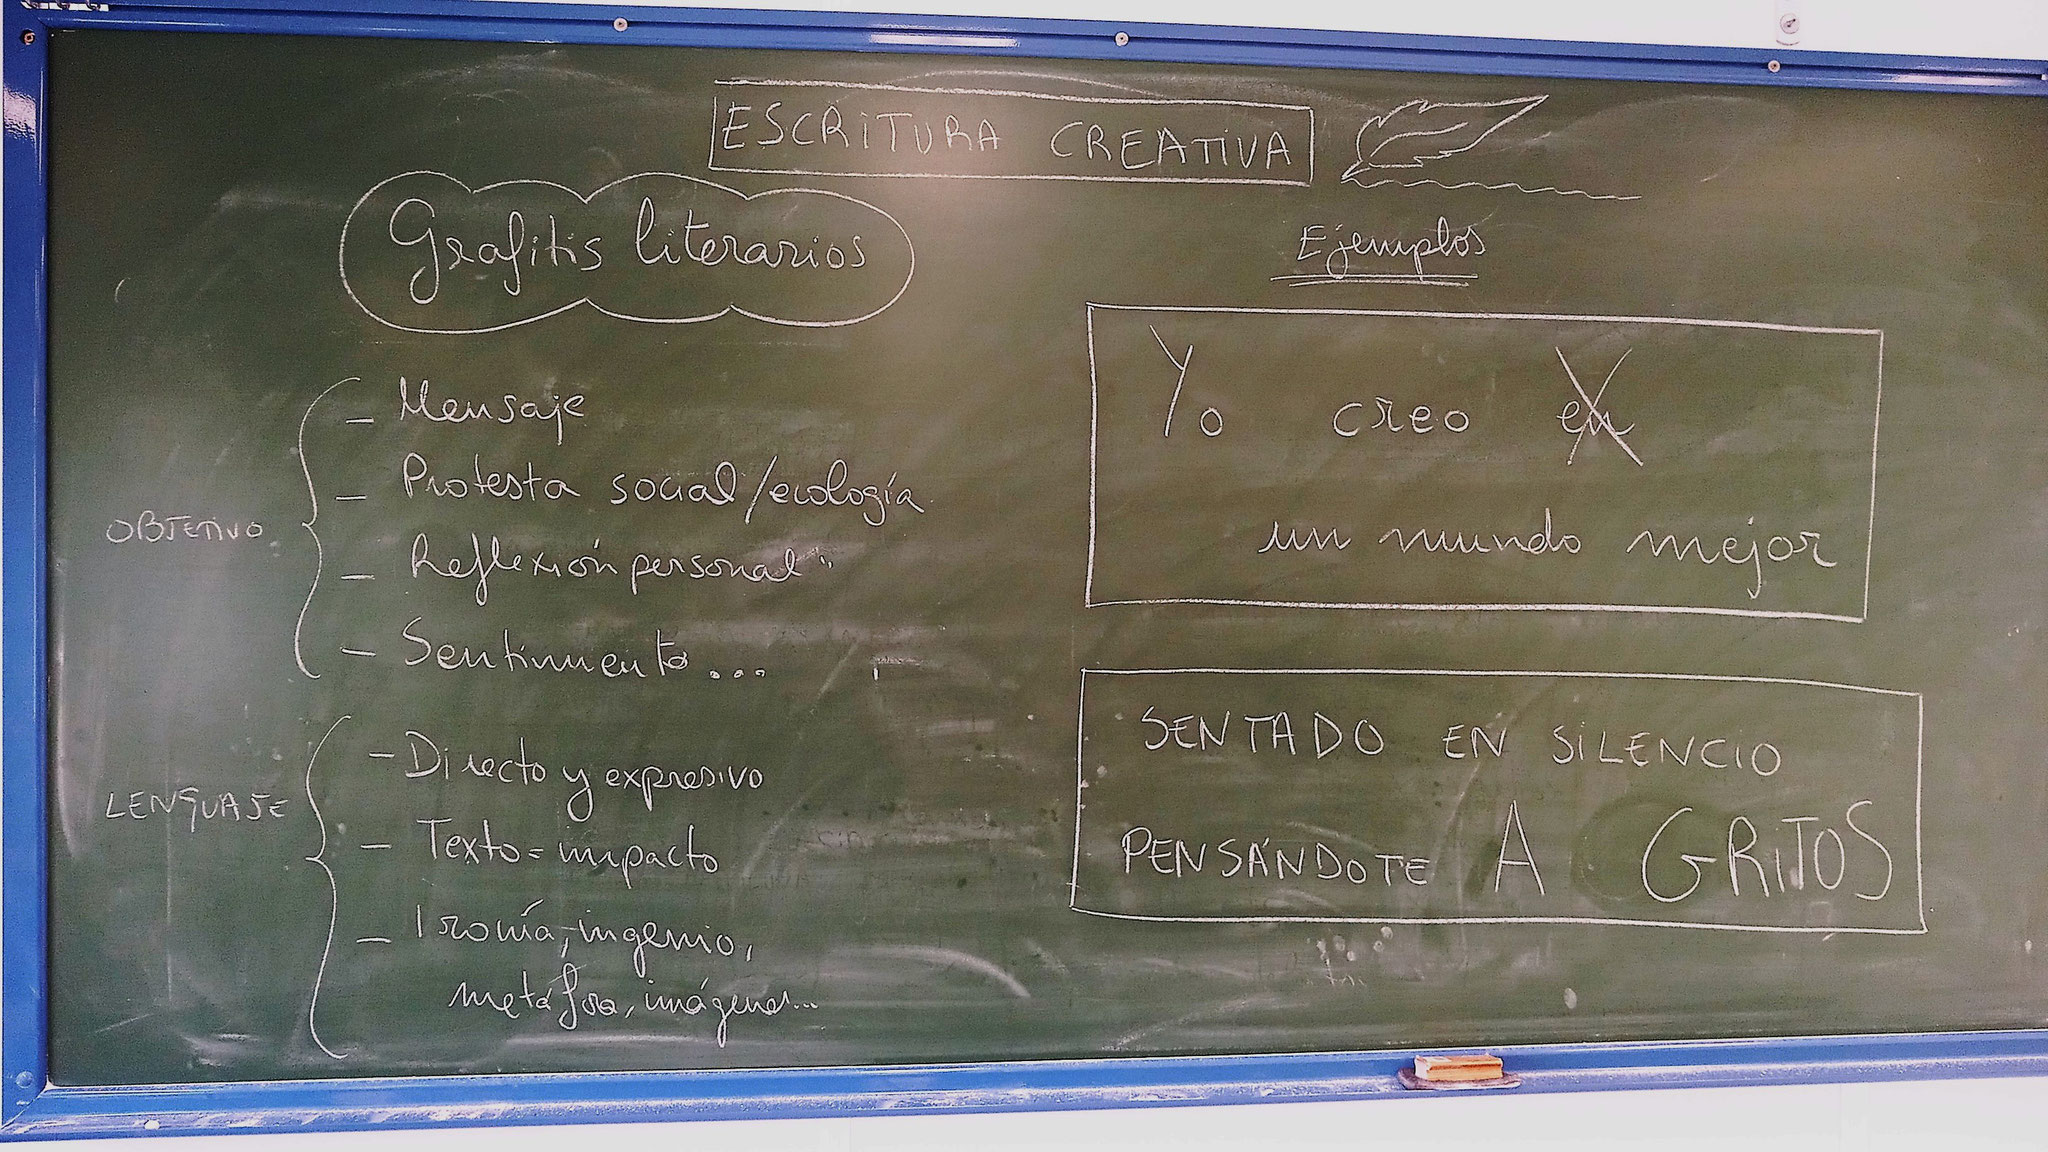 ESCRITURA CREATIVA
Grafitis literarios
OBJETIVO
- Mensaje
- Protesta social/ecología
- Reflexión personal
- Sentimiento...
LENGUAJE
- Directo y expresivo
- Texto = impacto
- Ironía, ingenio,
metáfora, imágenes...
Ejemplos
Yo creo en
un mundo mejor
SENTADO EN SILENCIO
PENSÁNDOTE A GRITOS